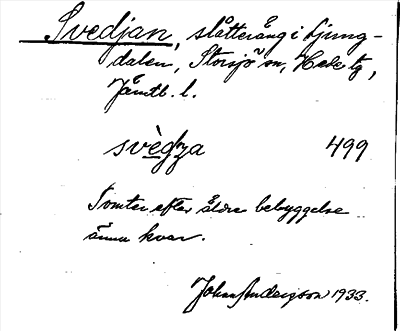 Svedjan, slåtteräng i Ljung-
dalen, Storsjö sn, Hede tg,
Jämtl. l.
svèdza 499
Tomter efter äldre bebyggelse
ännu kvar.
Johan Andersson 1933.